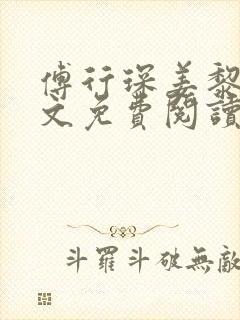 傅行琛姜黎
文免費閱讀
斗羅斗破無敵